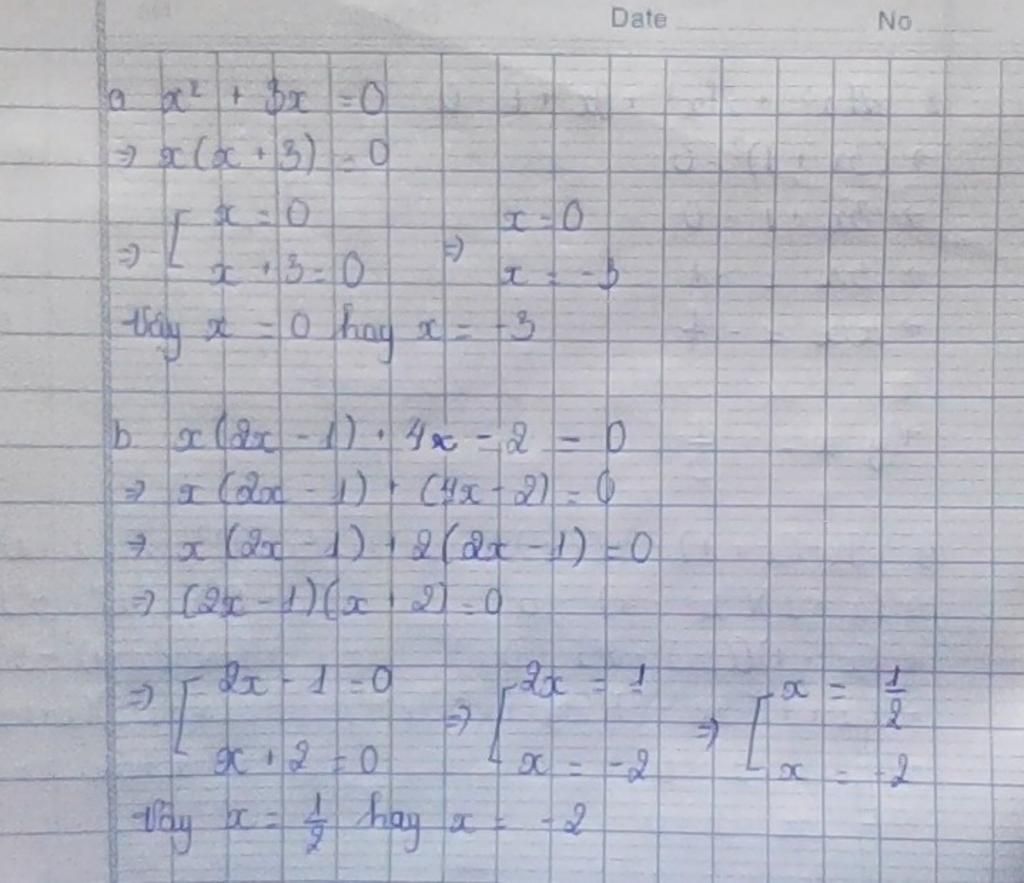 Date No
a x² + 3x = 0
⇒ x(x + 3) = 0
⇒ [ x = 0 ⇒ x = 0
x + 3 = 0 x = -3
Vậy x = 0 hay x = -3
b x(2x - 1) + 4x - 2 = 0
⇒ x(2x - 1) + (4x - 2) = 0
⇒ x(2x - 1) + 2(2x - 1) = 0
⇒ (2x - 1)(x + 2) = 0
⇒ [ 2x - 1 = 0 ⇒ [ 2x = 1 ⇒ [ x = 1/2
x + 2 = 0 x = -2 x = -2
Vậy x = 1/2 hay x = -2